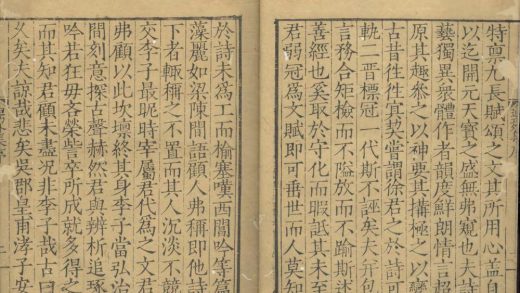 特禀尤長賦頌之文其所用心蓋自
以迄開元天寳之盛無弗窺也大詩
藝獨異衆體作者韻度鮮朗情言超
原其趣叅之以神要其搆極之以變
古昔徃徃冝契嘗謂徐君之於詩可
軌二晉標冠一代斯不誣矣夫并包
言務合矩檢而不隘放而不踰斯述
善經也奚取於守化而暇詆其未至
君弱冠爲文賦即可垂世而人莫知
於詩未爲工而榆塞嘆西園吟等篇
藻麗如梁陳間語顧人弗稱即他詩
下者輙稱之不置而其人沉淡不競
交李子最昵時寄屬君代爲之文君
弗顧以此坎壈終其身李子當弘治
間刻意探古聲赫然君與辨析追琢
吟若狂毋各榮訾卒所成就多得之
而其知君顧未盡况非李子哉古曰
乆矣夫諒哉悲矣吳郡皇甫涍子安